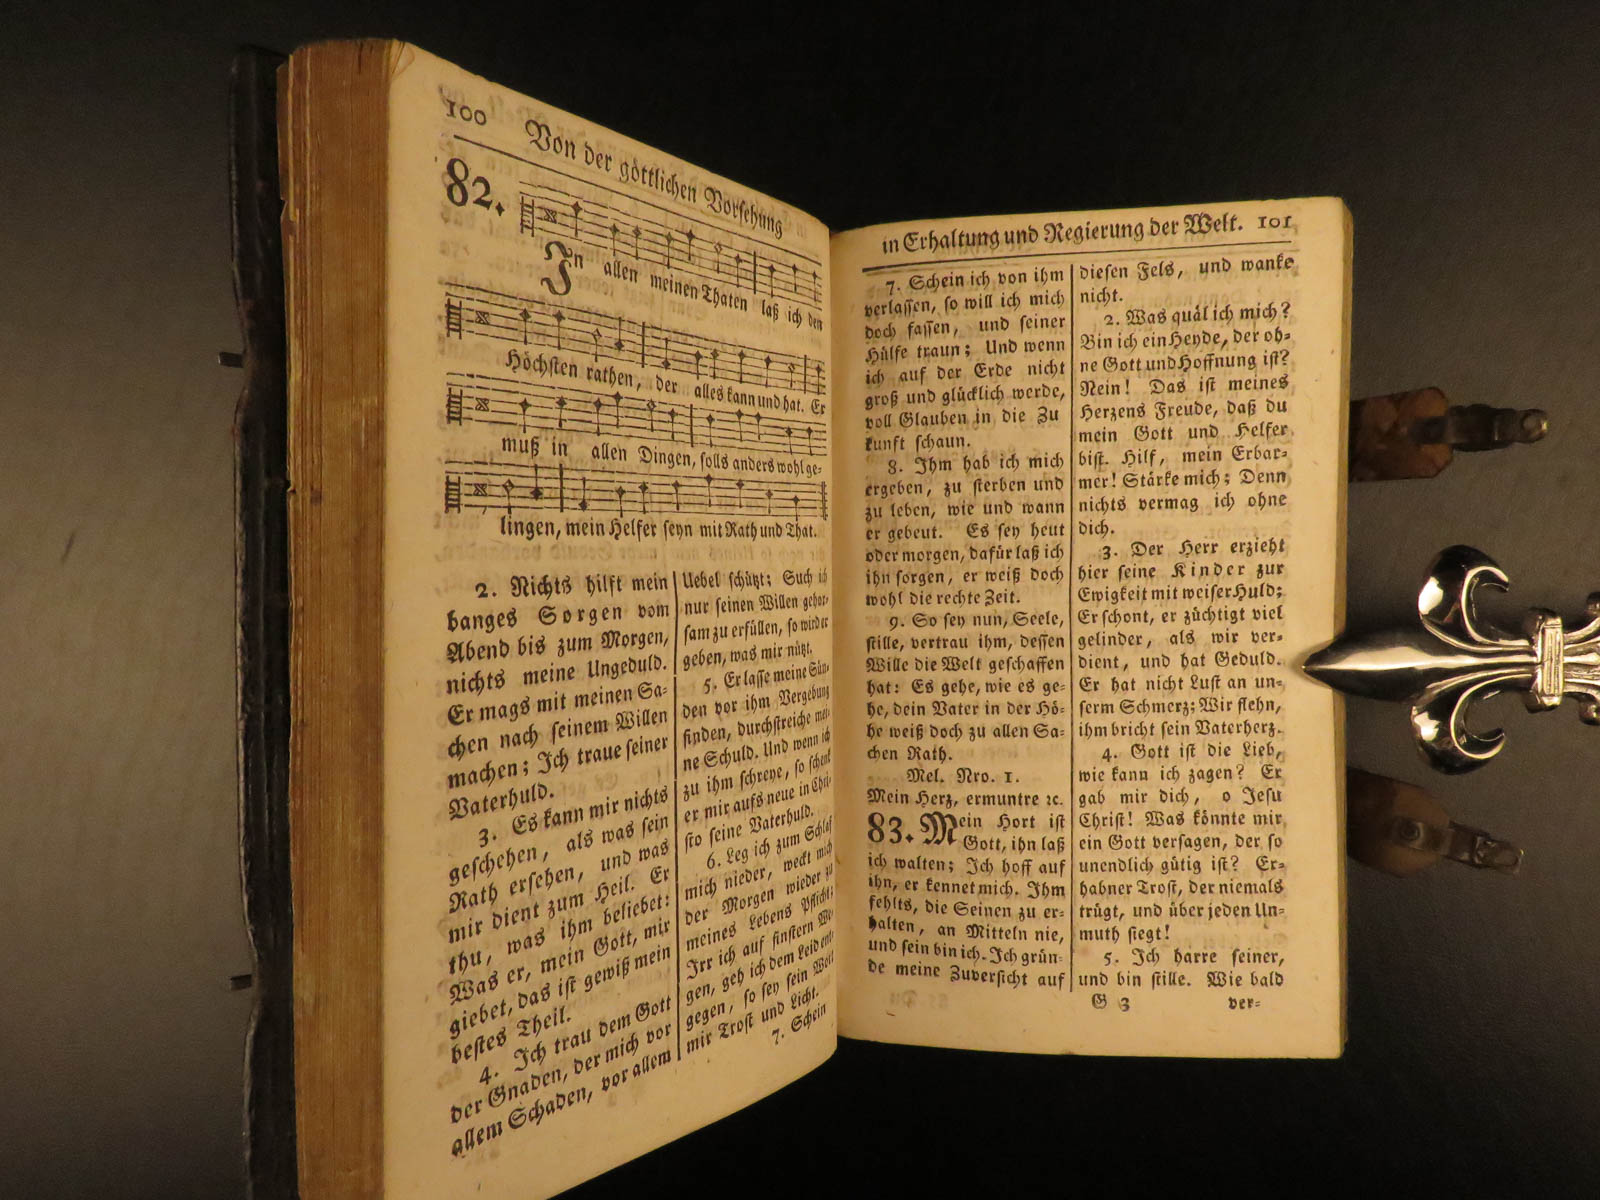 100 Von der göttlichen Vorsehung
82.
In allen meinen Thaten laß ich den
Höchsten rathen, der alles kann und hat. Er
muß in allen Dingen, solls anders wohl ge-
lingen, mein Helfer seyn mit Rath und That.
2. Nichts hilft mein
banges Sorgen vom
Abend bis zum Morgen,
nichts meine Ungeduld.
Er mags mit meinen Sa-
chen nach seinem Willen
machen; Ich traue seiner
Vaterhuld.
3. Es kann mir nichts
geschehen, als was sein
Rath ersehen, und was
mir dient zum Heil. Er
thu, was ihm beliebet:
Was er, mein Gott, mir
giebet, das ist gewiß mein
bestes Theil.
4. Ich trau dem Gott
der Gnaden, der mich vor
allem Schaden, vor allem
Uebel schützt; Such ich
nur seinen Willen gehor-
sam zu erfüllen, so wird er
geben, was mir nützt.
5. Er lasse meine Sün-
den vor ihm Vergebung
finden, durchstreiche mei-
ne Schuld. Und wenn ich
zu ihm schreye, so schenk
er mir aufs neue in Chri-
sto seine Vaterhuld.
6. Leg ich zum Schlaf
mich nieder, weckt mich
der Morgen wieder zu
meines Lebens Pflicht;
Irr ich auf finstern We-
gen, geh ich dem Leid ent-
gegen, so sey sein Wort
mir Trost und Licht.
7. Schein
in Erhaltung und Regierung der Welt. 101
7. Schein ich von ihm
verlassen, so will ich mich
doch fassen, und seiner
Hülfe traun; Und wenn
ich auf der Erde nicht
groß und glücklich werde,
voll Glauben in die Zu
kunft schaun.
8. Ihm hab ich mich
ergeben, zu sterben und
zu leben, wie und wann
er gebeut. Es sey heut
oder morgen, dafür laß ich
ihn sorgen, er weiß doch
wohl die rechte Zeit.
9. So sey nun, Seele,
stille, vertrau ihm, dessen
Wille die Welt geschaffen
hat: Es gehe, wie es ge-
he, dein Vater in der Hö-
he weiß doch zu allen Sa-
chen Rath.
Mel. Nro. 1.
Mein Herz, ermuntre ꝛc.
83. Mein Hort ist
Gott, ihn laß
ich walten; Ich hoff auf
ihn, er kennet mich. Ihm
fehlts, die Seinen zu er-
halten, an Mitteln nie,
und sein bin ich. Ich grün-
de meine Zuversicht auf
diesen Fels, und wanke
nicht.
2. Was quäl ich mich?
Bin ich ein Heyde, der oh-
ne Gott und Hoffnung ist?
Nein! Das ist meines
Herzens Freude, daß du
mein Gott und Helfer
bist. Hilf, mein Erbar-
mer! Stärke mich; Denn
nichts vermag ich ohne
dich.
3. Der Herr erzieht
hier seine Kinder zur
Ewigkeit mit weiser Huld;
Er schont, er züchtigt viel
gelinder, als wir ver-
dient, und hat Geduld.
Er hat nicht Lust an un-
serm Schmerz; Wir flehn,
ihm bricht sein Vaterherz.
4. Gott ist die Lieb,
wie kann ich zagen? Er
gab mir dich, o Jesu
Christ! Was könnte mir
ein Gott versagen, der so
unendlich gütig ist? Er-
habner Trost, der niemals
trügt, und über jeden Un-
muth siegt!
5. Ich harre seiner,
und bin stille. Wie bald
G 3 ver-